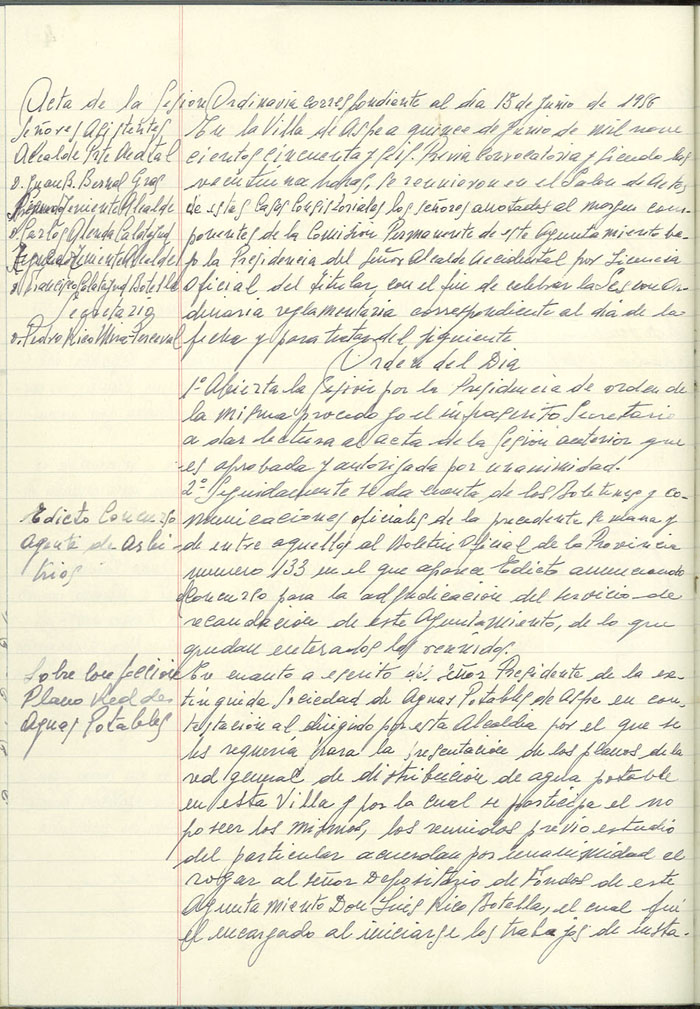 Acta de la Sesion Ordinaria correspondiente al dia 15 de Junio de 1956
Señores Asistentes
Alcalde Pte Acctal
D. Juan B. Bernal Gras
Primer Teniente Alcalde
D. Carlos Alenda Calatayud
Segundo Teniente Alcalde
D. Francisco Calatayud Botella
Secretario
D. Pedro Rico Mira-Perceval
En la Villa de Aspe a quince de Junio de mil nove
cientos cincuenta y seis. Previa Convocatoria y siendo las
veintiuna horas, se reunieron en el Salon de Actos
de estas Casas Consistoriales los señores anotados al margen com-
ponentes de la Comision Permanente de este Ayuntamiento ba-
jo la Presidencia del Señor Alcalde Accidental por Licencia
Oficial del titular, con el fin de celebrar la Sesion Or-
dinaria reglamentaria correspondiente al dia de la
fecha y para tratar del siguiente
Orden del Dia
1º Abierta la Sesión por la Presidencia de orden de
la misma procedo yo el infrascrito Secretario
a dar lectura al acta de la Sesion anterior que
es aprobada y autorizada por unanimidad.
2º Seguidamente se da cuenta de los Boletines y co-
Edicto Concurso
Agente de Arbi-
trios
municaciones oficiales de la precedente semana y
de entre aquellos al Boletin Oficial de la Provincia
numero 133 en el que aparece Edicto anunciando
Concurso para la adjudicación del servicio de
recaudación de este Ayuntamiento, de lo que
quedan enterados los reunidos.
Sobre confeccion
Plano Red de
Aguas Potables
En cuanto a escrito del Señor Presidente de la ex-
tinguida Sociedad de Aguas Potables de Aspe en con-
testación al dirigido por esta Alcaldia por el que se
les requeria para la presentación de los planos de la
red general de distribución de agua potable
en esta Villa y por la cual se participa el no
poseer los mismos, los reunidos previo estudio
del particular acuerdan por unanimidad el
rogar al señor Depositario de Fondos de este
Ayuntamiento Don Luis Rico Botella, el cual fué
el encargado al iniciarse los trabajos de insta-